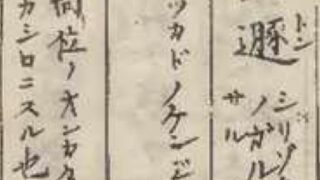 トン
遯 シリゾ
ノガル
サル
ツカドノケンビ
尚位ノオンカタ
カシロニスル也